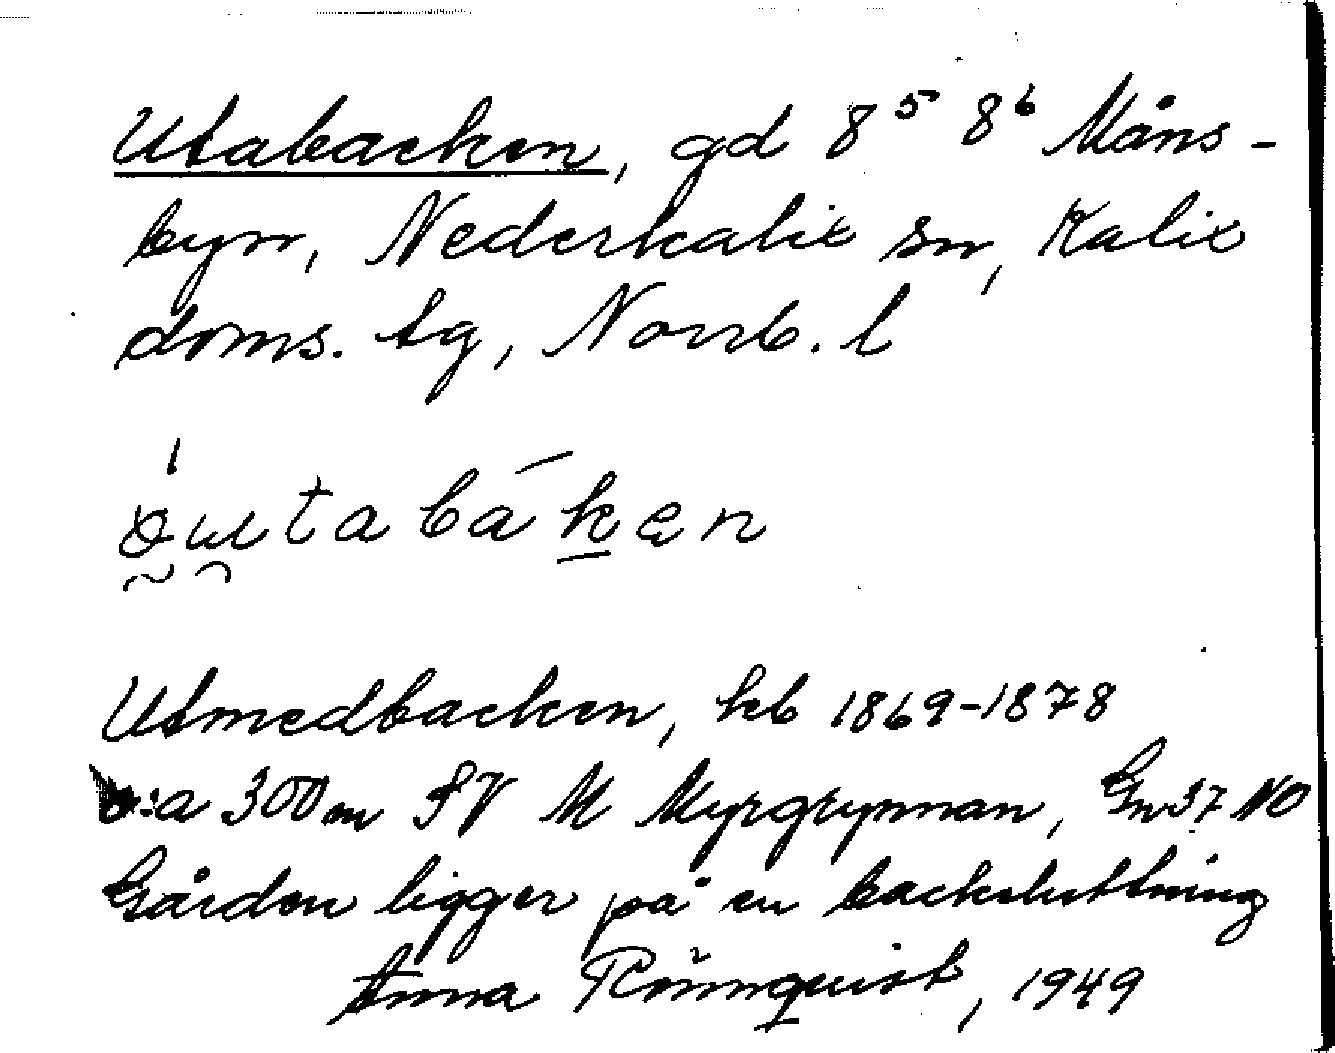 Utabacken, gd 8⁵ 8⁶ Måns-
byn, Nederkalix sn, Kalix
doms. tg, Norrb. l
tabáken
Utmedbacken, hb 1869-1878
c:a 300 m SV M Myrgrynnan, Gn 37 NO
Gården ligger på en backsluttning
Anna Rönnquist, 1949